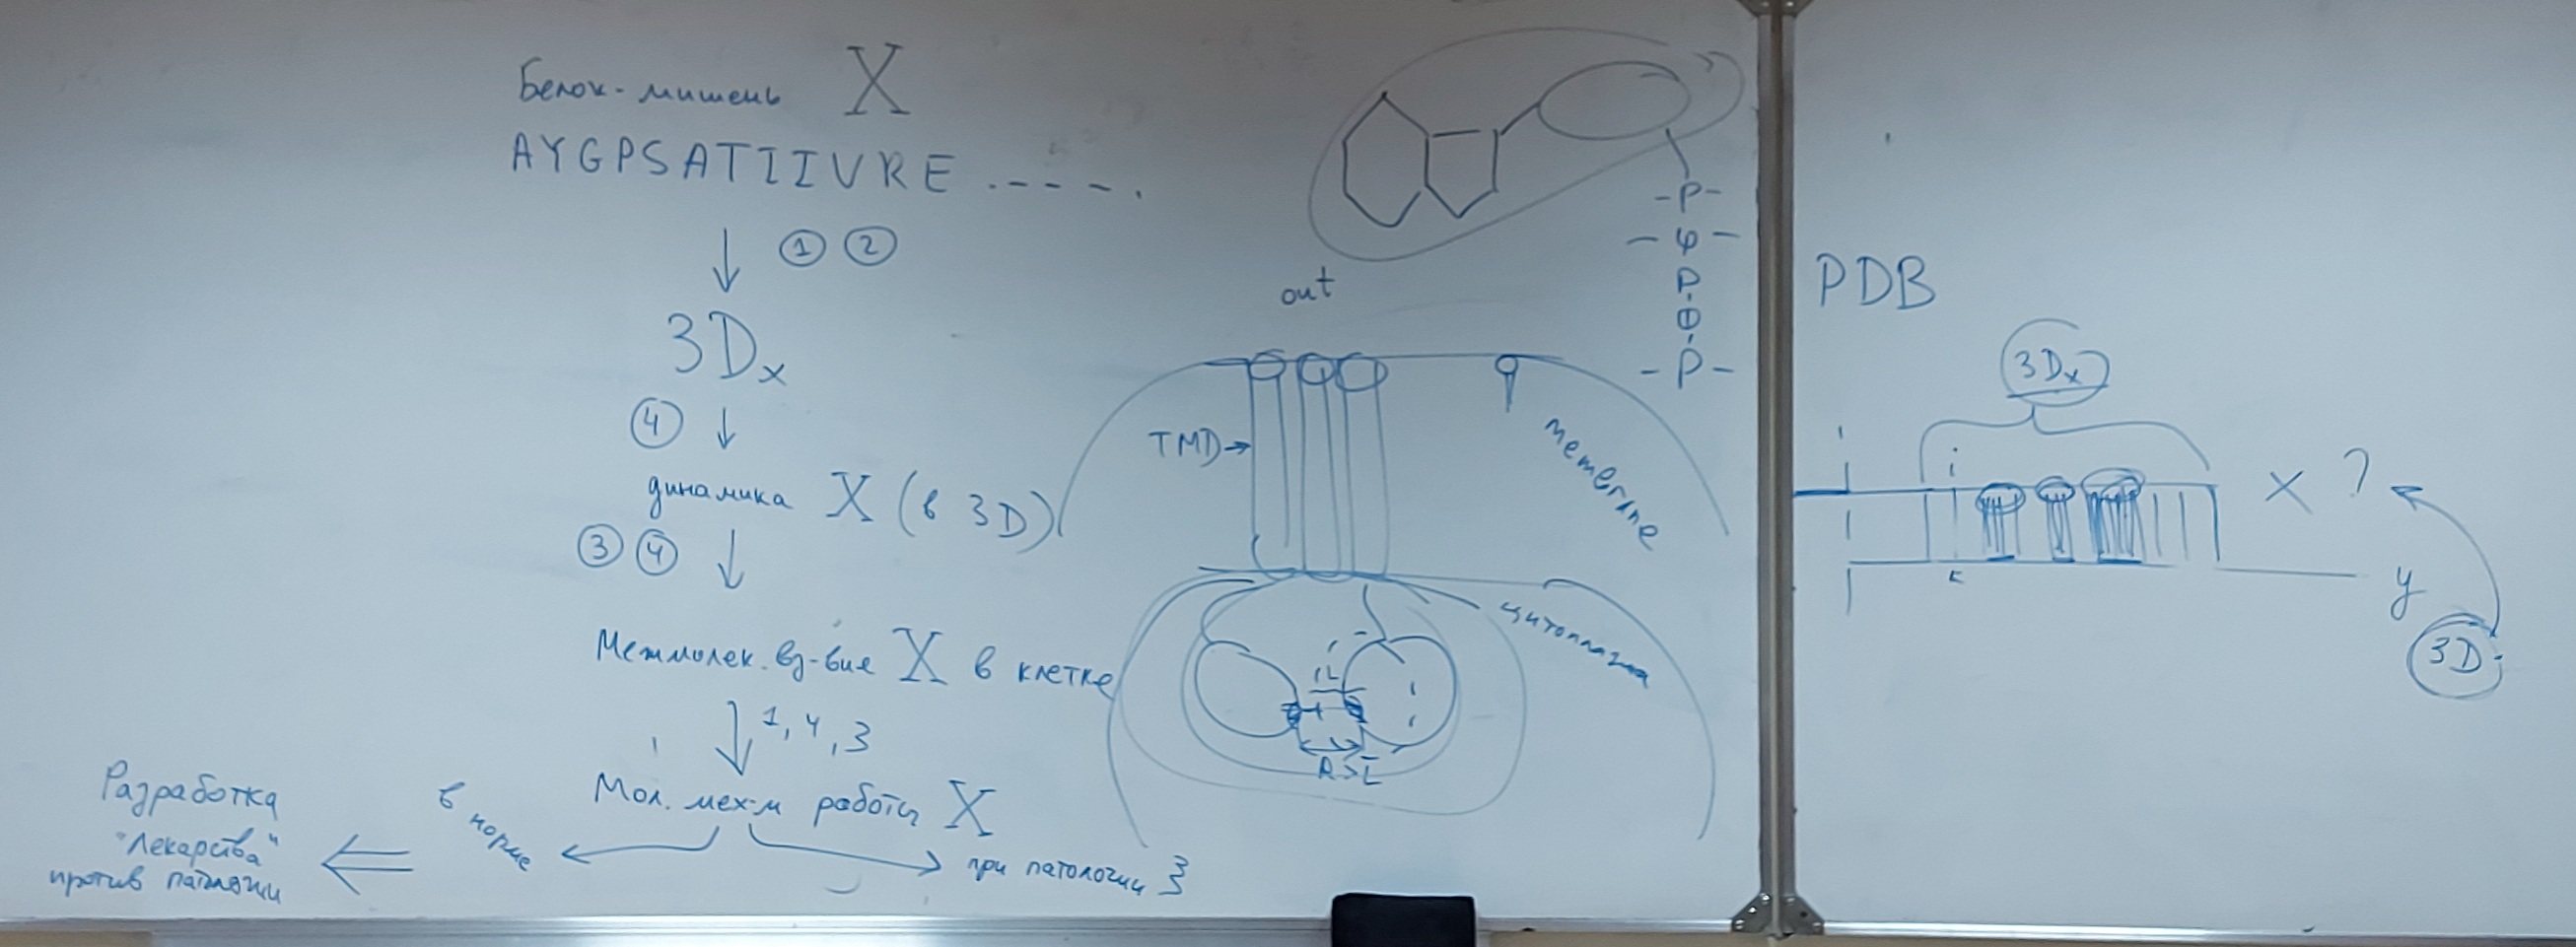 Белок-мишень X
AYGPSATIIVRE
1 2
3Dx
4
динамика X (в 3D)
3 4
Межмолек. вз-вие X в клетке
1, 4, 3
Мол. мех-м работы X
в норме
при патологии
Разработка
"Лекарства"
против патологии
out
-P-
- φ -
P
-P-
TMD
membrane
цитоплазма
PDB
3Dx
i
X ?
y
3D